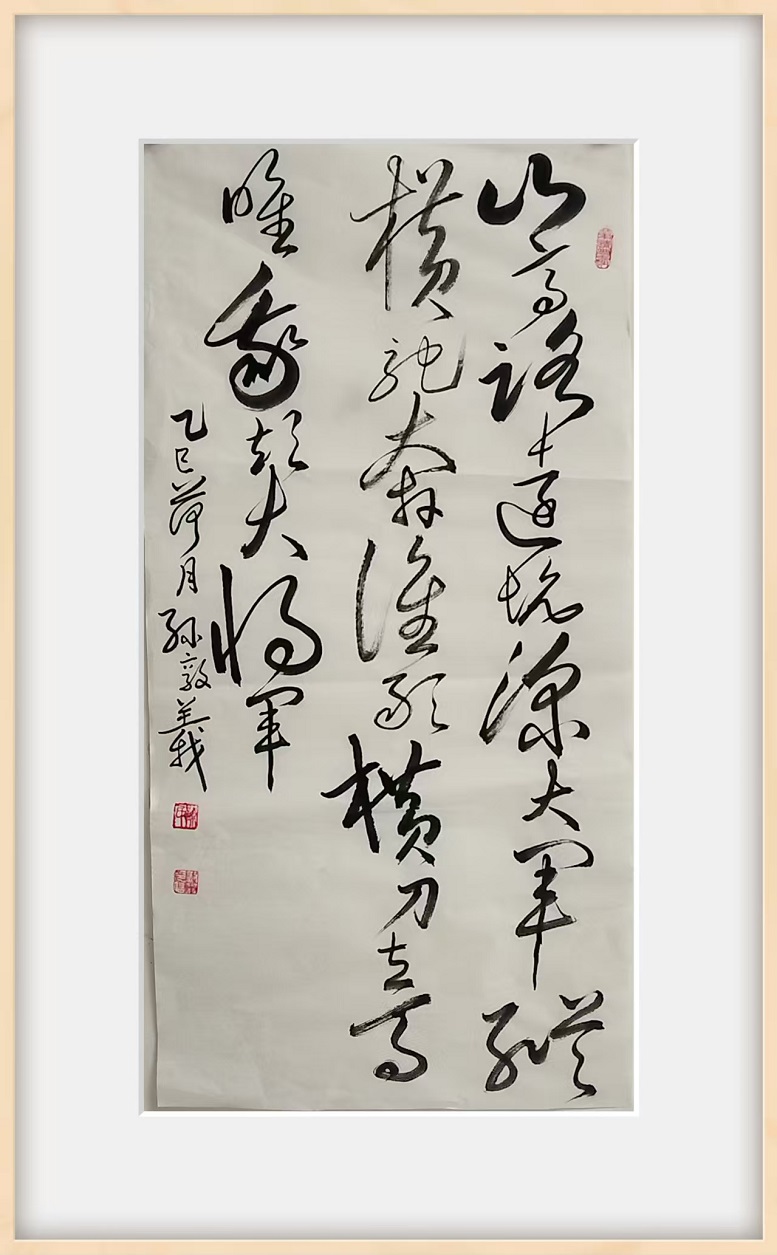 山高路远坑深大军纵
横驰奔谁敢横刀立马
唯我彭大将军
乙巳荷月孙敦義